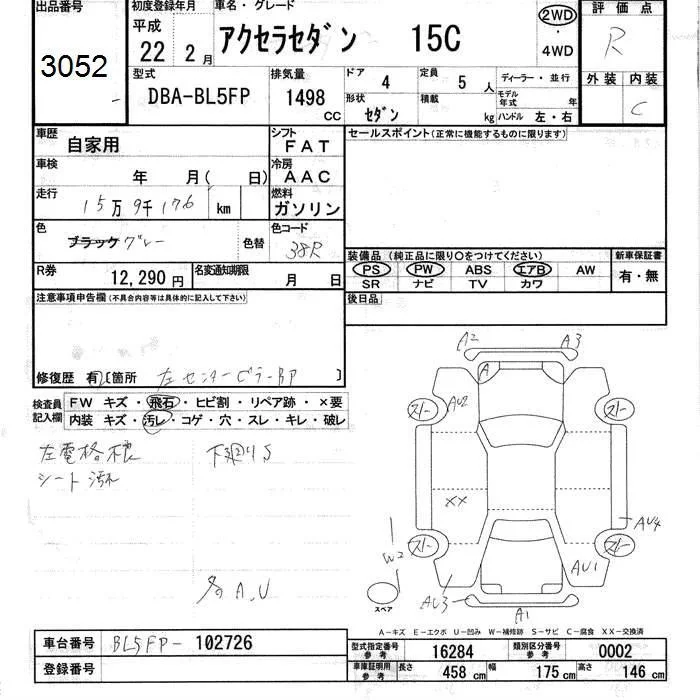 出品番号 初度登録年月 車名・グレード 2WD 評価点
3052 平成 22 2月 アクセラセダン 15C ・4WD R
型式 排気量 ドア 4 定員 5人 ディーラー・並行 外装 内装
DBA-BL5FP 1498 CC 形状 セダン 積載 kg モデル年式 年 ハンドル 左・右 C
車歴 自家用 シフト FAT セールスポイント(正常に機能するものに限ります)
車検 年 月( 日) 冷房 AAC
走行 15万9千176 km 燃料 ガソリン
色 ブラック グレー 色替 色コード 38R
装備品(純正品に限り〇をつけてください) 新車保証書
PS PW ABS エアB AW 有・無
SR ナビ TV カワ
R券 12,290円 名変通知期限 月 日 後日品
注意事項申告欄(不具合内容等は具体的に記入して下さい)
修復歴 有 [箇所 左センターピラーBP ]
検査員記入欄 FW キズ・飛石・ヒビ割・リペア跡・×要
内装 キズ・汚レ・コゲ・穴・スレ・キレ・破レ
左電格根 下廻りS
シート汚れ
多A.U
A2 A3
A
スト AU2 スト
XX
AU4
W2 スト スト
AU1
スペア AU3 A1
A-キズ E-エクボ U-凹み W-補修跡 S-サビ C-腐食 XX-交換済
車台番号 BL5FP-102726 型式指定番号 参考 16284 類別区分番号 参考 0002
登録番号 車庫証明用 参考 長さ 458cm 幅 175cm 高さ 146cm